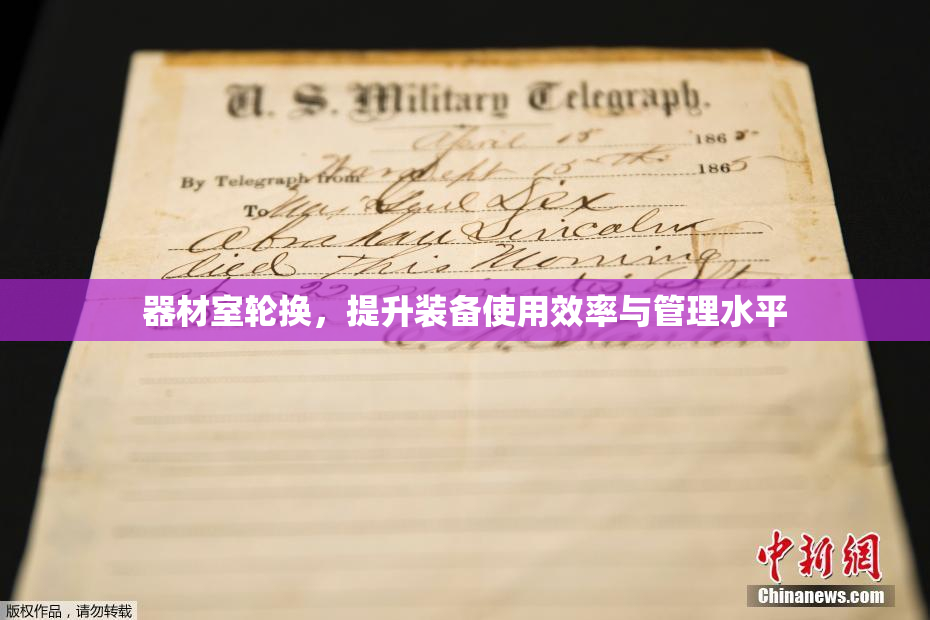 U. S. Military Telegraph.
April 15 1865
By Telegraph from War Dept 15th 1865
To Maj Genl Dix
Abraham Lincoln
died This Morning
at 22 minutes after
器材室轮换，提升装备使用效率与管理水平
E. M. Stanton
中新网
Chinanews.com
版权作品，请勿转载